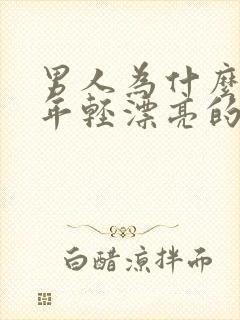 男人為什麼
年輕漂亮的
白醋涼拌而